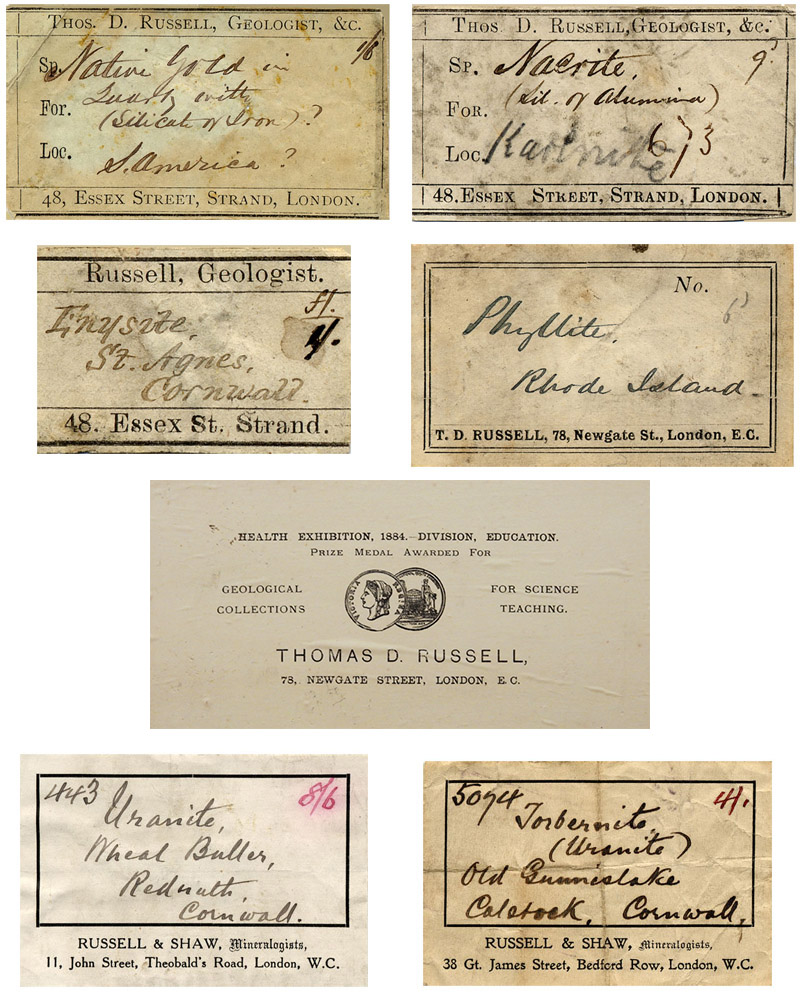 THOS. D. RUSSELL, GEOLOGIST, &C.
Sp. Native Gold in 1/6
For. Quartz with
(Silicate of Iron)?
Loc. S. America ?
48, ESSEX STREET, STRAND, LONDON.
THOS. D. RUSSELL, GEOLOGIST, &C.
SP. Nacrite, 9d
FOR. (Sil. of Alumina)
LOC. Kaolinite 673
48. ESSEX STREET, STRAND, LONDON.
Russell, Geologist.
Enysite, 
St. Agnes, 1/.
Cornwall.
48. Essex St. Strand.
No.
Phyllite,
Rhode Island
T. D. RUSSELL, 78, Newgate St., London, E.C.
HEALTH EXHIBITION, 1884.—DIVISION, EDUCATION.
PRIZE MEDAL AWARDED FOR
GEOLOGICAL COLLECTIONS
VICTORIA REGINA
FOR SCIENCE TEACHING.
THOMAS D. RUSSELL,
78, NEWGATE STREET, LONDON, E.C.
443 8/6
Uranite,
Wheal Buller,
Redruth,
Cornwall.
RUSSELL & SHAW, Mineralogists,
11, John Street, Theobald's Road, London, W.C.
5074 4/.
Torbernite
(Uranite)
Old Gunnislake
Calstock, Cornwall,
RUSSELL & SHAW, Mineralogists,
38 Gt. James Street, Bedford Row, London, W.C.